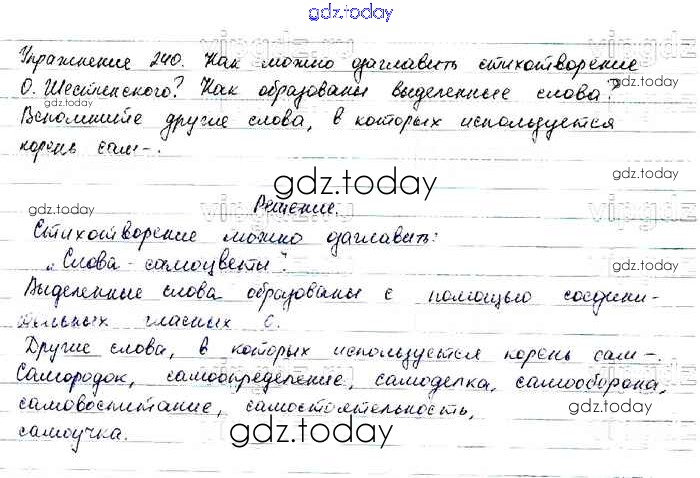 gdz.today
Упражнение 240. Как можно озаглавить стихотворение
О. Шестинского? Как образованы выделенные слова?
Вспомните другие слова, в которых используется
корень сам-.
Решение.
Стихотворение можно озаглавить:
"Слова-самоцветы".
Выделенные слова образованы с помощью соедини-
тельных гласных о.
Другие слова, в которых используется корень сам-.
Самородок, самоопределение, самоделка, самооборона,
самовоспитание, самостоятельность,
самоучка.
gdz.today
gdz.today
gdz.today
gdz.today
gdz.today
gdz.today
gdz.today
gdz.today